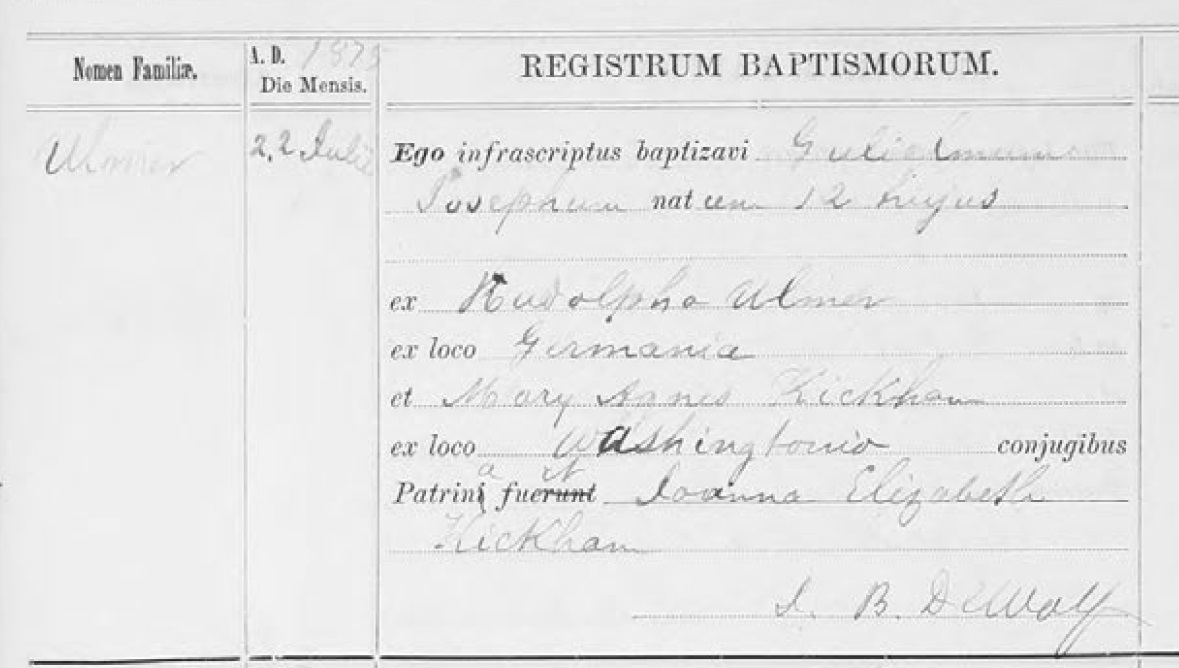 Nomen Familiæ.
A. D. 1873
Die Mensis.
REGISTRUM BAPTISMORUM.
Ulmer
22 Julii
Ego infrascriptus baptizavi Gulielmum
Josephum natum 12 hujus
ex Rudolpho Ulmer
ex loco Germania
et Mary Agnes Kickham
ex loco Washingtonio conjugibus
a it
Patrini fuerunt Joanna Elizabeth
Kickham
J. B. DeWolf